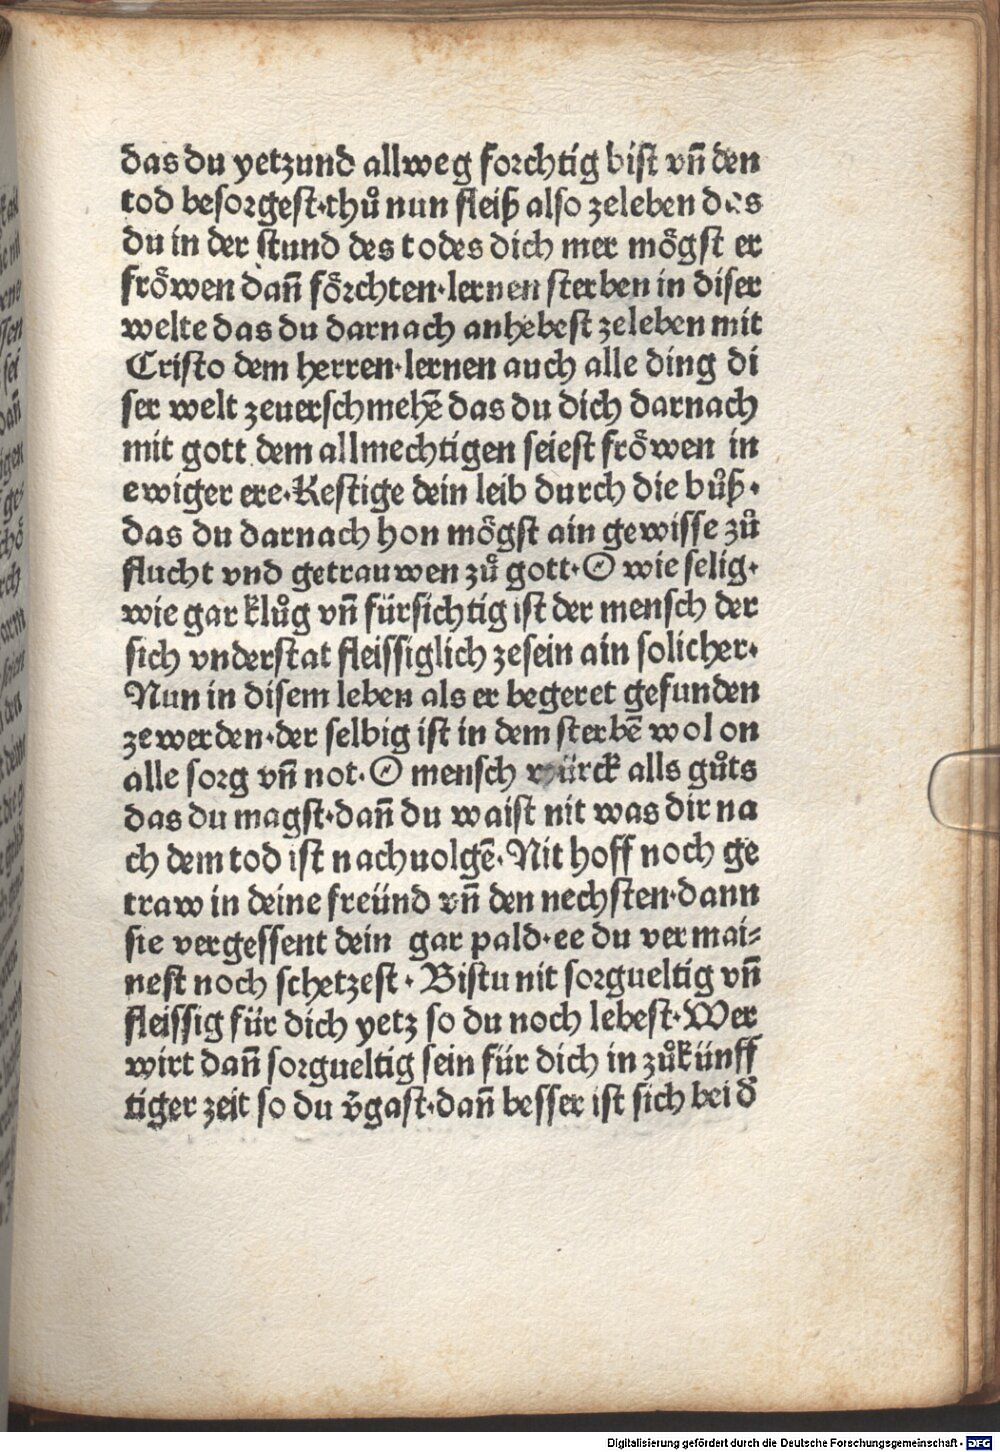 das du yetzund allweg forchtig bist vn̄ den
tod besorgest·thů nun fleiß also zeleben das
du in der stund des todes dich mer mögst er
fröwen dann̄ förchten·lernen sterben in diser
welte das du darnach anhebest zeleben mit
Cristo dem herren·lernen auch alle ding di
ser welt zeuerschmehē das du dich darnach
mit gott dem allmechtigen seiest fröwen in
ewiger ere·Kestige dein leib durch die bůß·
das du darnach hon mögst ain gewisse zů
flucht vnd getrauwen zů gott·O wie selig·
wie gar klůg vn̄ fürsichtig ist der mensch der
sich vnderstat fleissiglich zesein ain solicher·
Nun in disem leben als er begeret gefunden
zewerden·der selbig ist in dem sterbē wol on
alle sorg vn̄ not·O mensch würck alls gůts
das du magst·dan̄ du waist nit was dir na
ch dem tod ist nachuolgē·Nit hoff noch ge
traw in deine freünd vn̄ den nechsten·dann
sie vergessent dein gar pald·ee du vermai⸗
nest noch schetzest·Bistu nit sorgueltig vn̄
fleissig für dich yetz so du noch lebest·Wer
wirt dan̄ sorgueltig sein für dich in zůkünff
tiger zeit so du v̄gast·dan̄ besser ist sich bei d̄
Digitalisierung gefördert durch die Deutsche Forschungsgemeinschaft - DFG